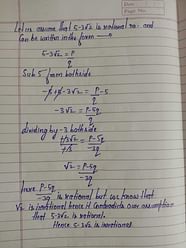 Date
Page No.
Let us assume that 5-3√2 is rational no. and
can be written in the form
5-3√2 = P/q
Sub 5 from both side
-5+5-3√2 = P/q - 5
-3√2 = P-5q/q
dividing by -3 both side
+3√2/+3 = P-5q/-3q
√2 = P-5q/-3q
here P-5q/-3q is rational but we know that
√2 is irrational hence it contradicts our assumption
that 5-3√2 is rational.
Hence 5-3√2 is irrational